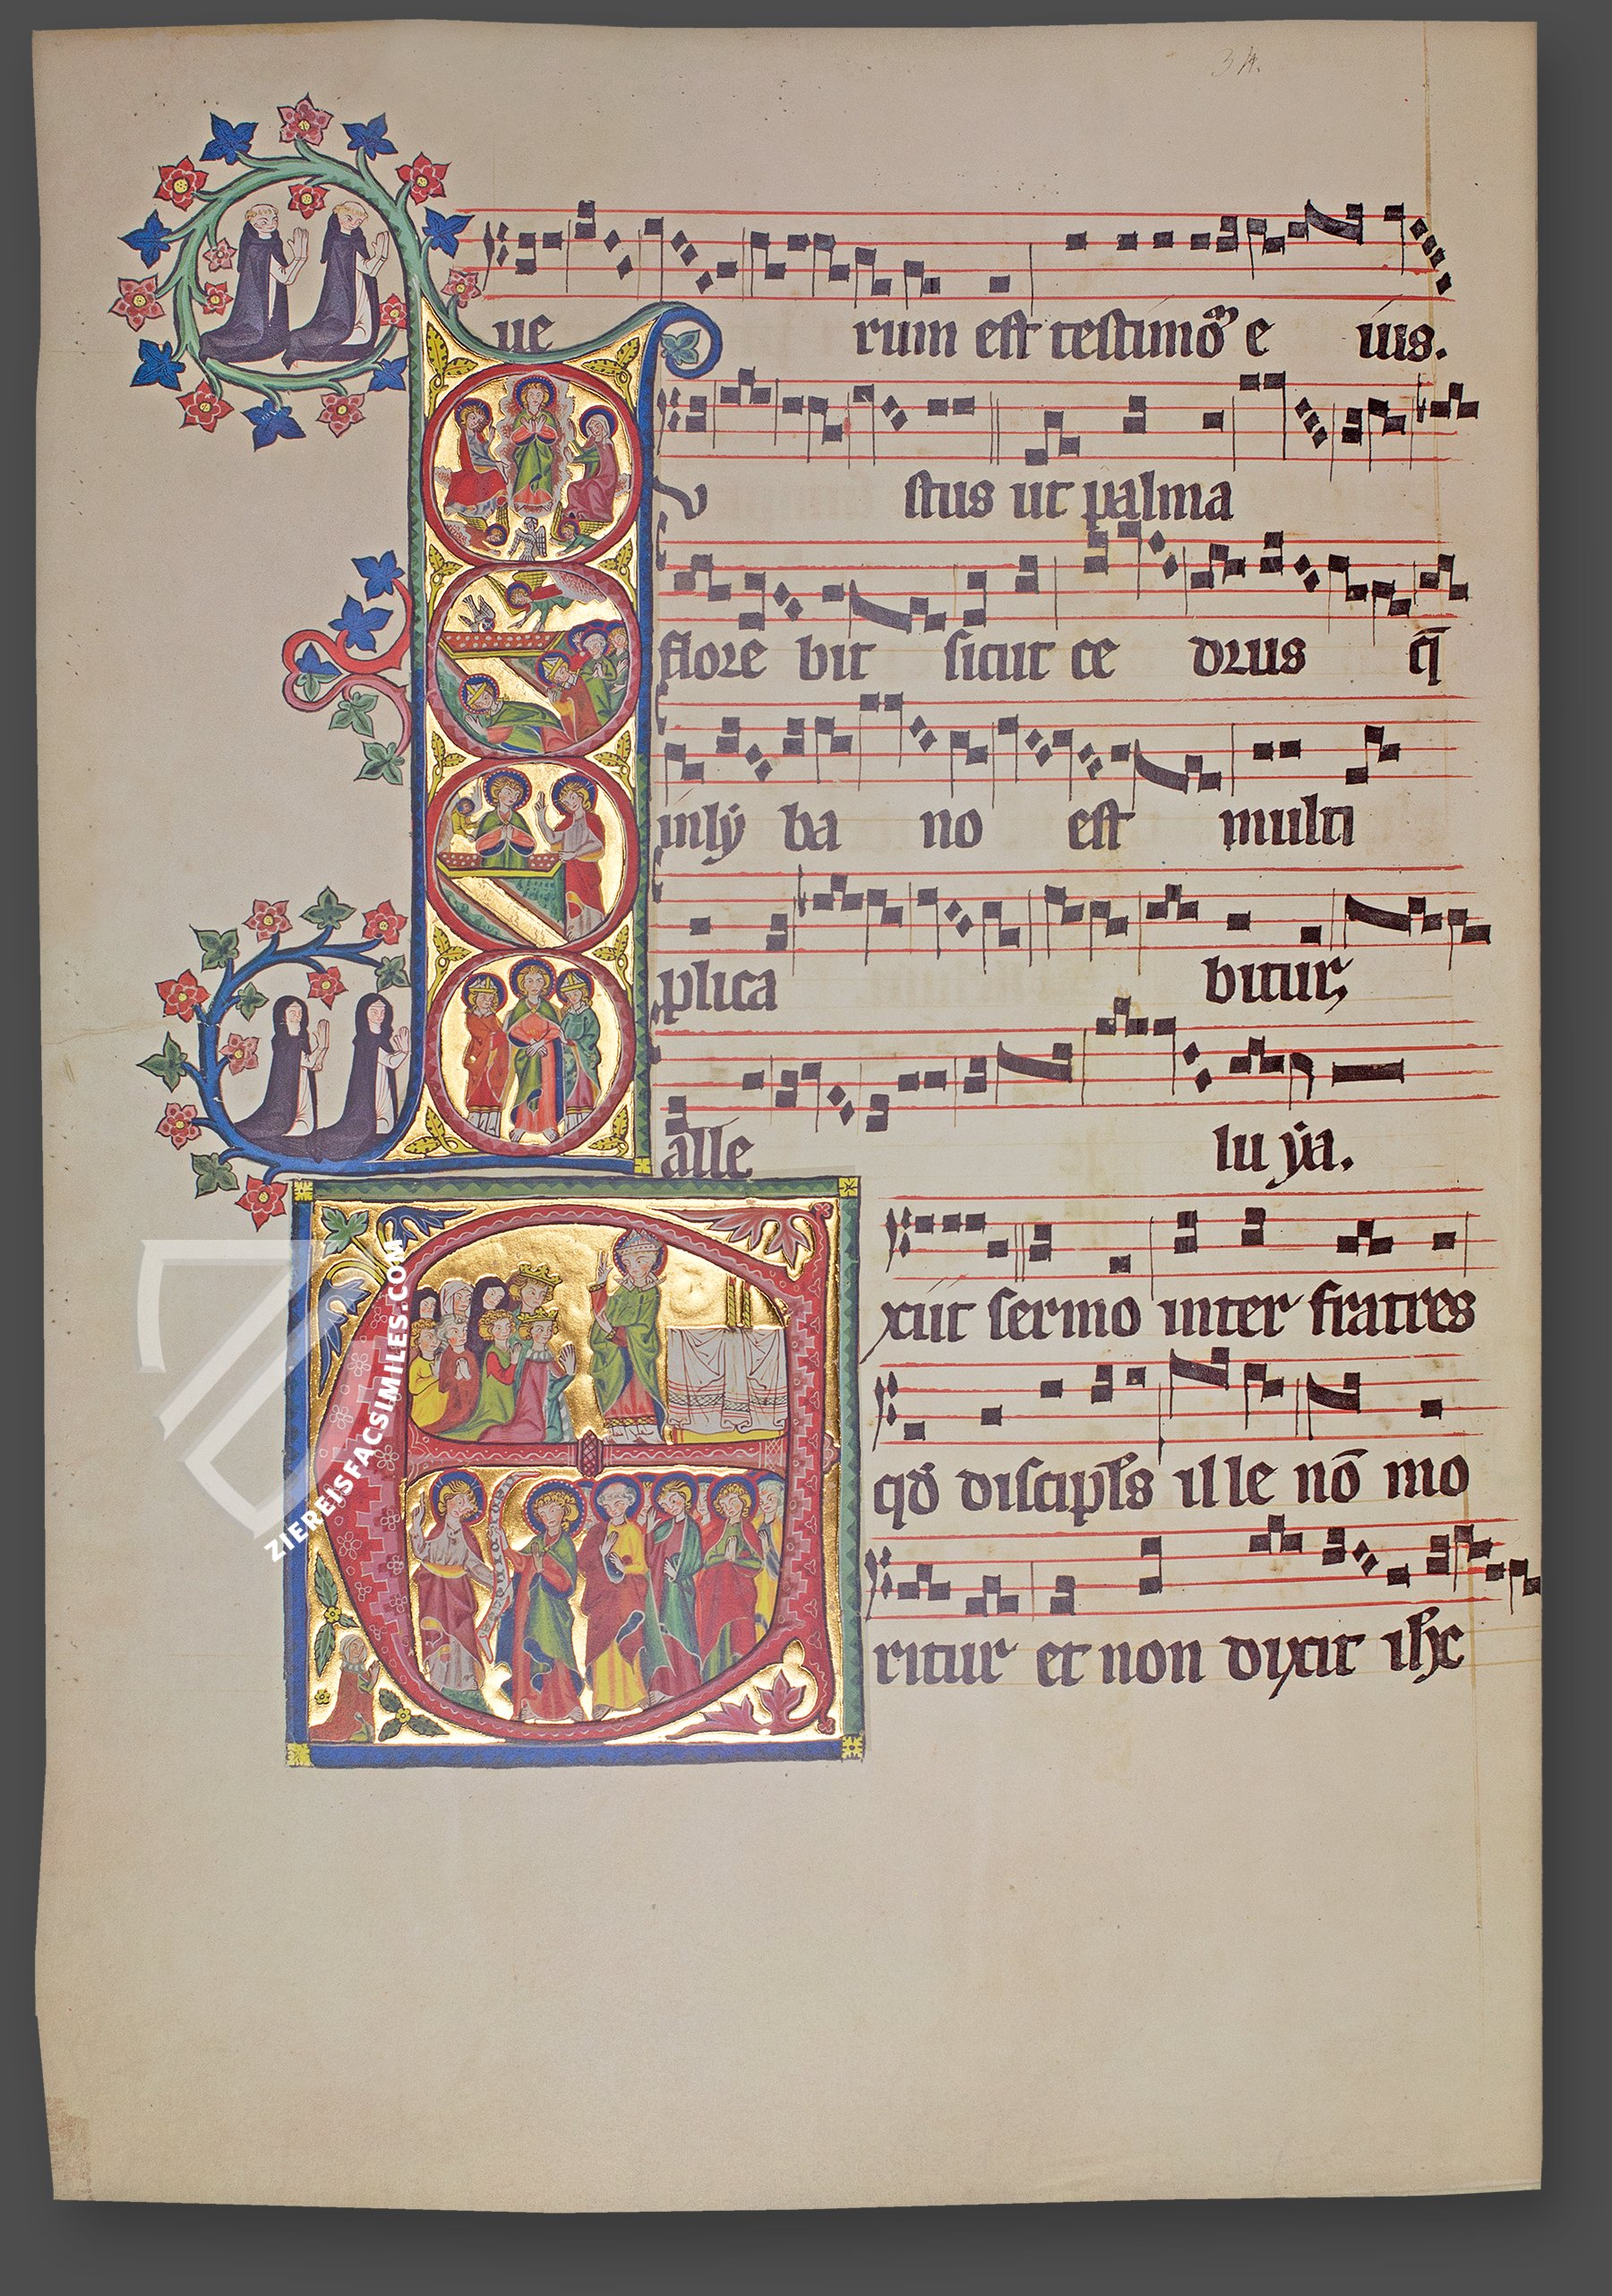 34.
ue rum est testimō e ius.
V stus ut palma
flore bit sicut ce drus q̄
in lẏ ba no est multi
plica bitur,
alle lu ẏa.
xiit sermo inter fratres
qđ discipl's ille nō mo
ritur et non dixit ihc
ZIEREISFACSIMILES.COM